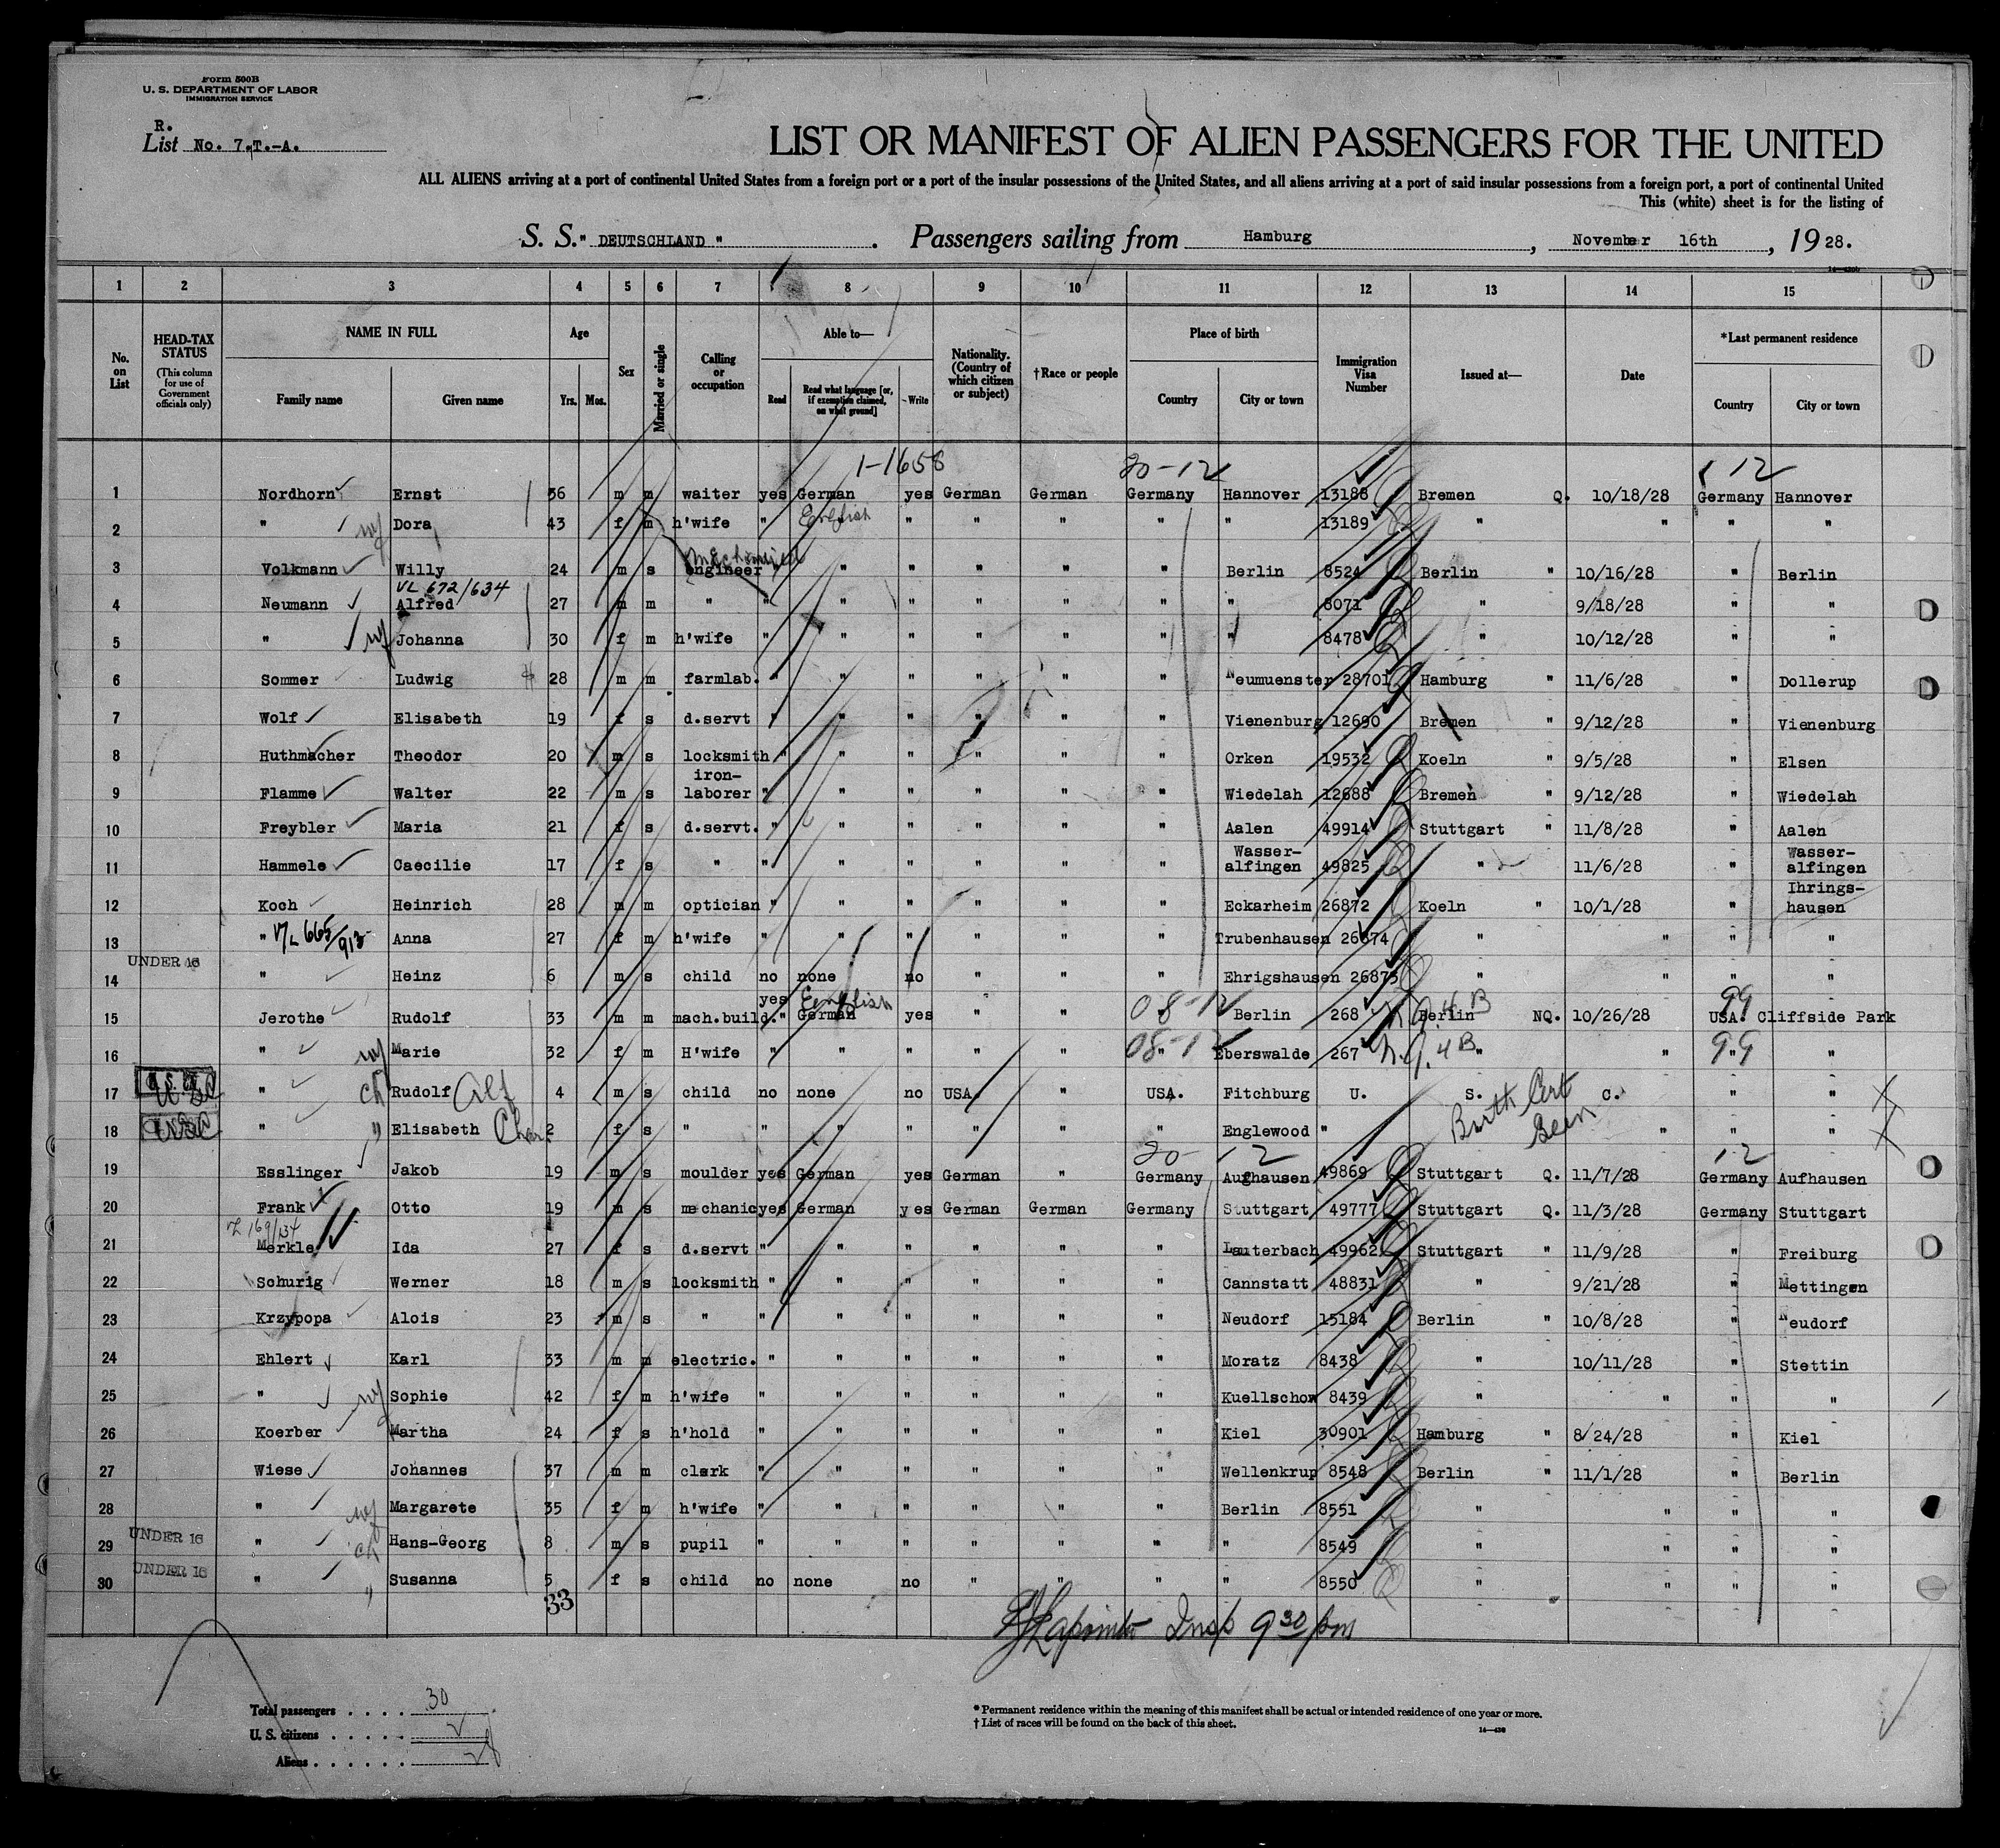 Form 500B
U. S. DEPARTMENT OF LABOR
IMMIGRATION SERVICE
R.
List No. 7.T.-A.
LIST OR MANIFEST OF ALIEN PASSENGERS FOR THE UNITED
ALL ALIENS arriving at a port of continental United States from a foreign port or a port of the insular possessions of the United States, and all aliens arriving at a port of said insular possessions from a foreign port, a port of continental United
This (white) sheet is for the listing of
S. S. " DEUTSCHLAND " . Passengers sailing from Hamburg , November 16th , 19 28.
1 2 3 4 5 6 7 8 9 10 11 12 13 14 15
No. on List HEAD-TAX STATUS (This column for use of Government officials only) NAME IN FULL Family name Given name Age Yrs. Mos. Sex Married or single Calling or occupation Able to— Read Read what language [or, if exemption claimed, on what ground] Write Nationality. (Country of which citizen or subject) †Race or people Place of birth Country City or town Immigration Visa Number Issued at— Date *Last permanent residence Country City or town
1-1658 20-12 12
1 Nordhorn Ernst 36 m m waiter yes German yes German German Germany Hannover 13188 Bremen Q. 10/18/28 Germany Hannover
2 " wf Dora 43 f m h'wife " English " " " " " 13189 " " " "
3 Volkmann Willy 24 m s engineer " " " " " " Berlin 8524 Berlin " 10/16/28 " Berlin
VL 672/634
4 Neumann Alfred 27 m m " " " " " " " " 8071 " 9/18/28 " "
5 " wf Johanna 30 f m h'wife " " " " " " " 8478 " 10/12/28 " "
6 Sommer Ludwig 28 m m farmlab. " " " " " " Neumuenster 28701 Hamburg " 11/6/28 " Dollerup
7 Wolf Elisabeth 19 f s d.servt " " " " " " Vienenburg 12690 Bremen " 9/12/28 " Vienenburg
8 Huthmacher Theodor 20 m s locksmith " " " " " " Orken 19532 Koeln " 9/5/28 " Elsen
iron-
9 Flamme Walter 22 m s laborer " " " " " " Wiedelah 12688 Bremen " 9/12/28 " Wiedelah
10 Freybler Maria 21 f s d.servt. " " " " " " Aalen 49914 Stuttgart " 11/8/28 " Aalen
Wasser- Wasser-
11 Hammele Caecilie 17 f s " " " " " " " alfingen 49825 " 11/6/28 " alfingen
Ihrings-
12 Koch Heinrich 28 m m optician " " " " " " Eckarheim 26872 Koeln " 10/1/28 " hausen
13 " VL 665/913 Anna 27 f m h'wife " " " " " " Trubenhausen 26874 " " " "
UNDER 16
14 " Heinz 6 m s child no none no " " " Ehrigshausen 26873 " " " "
yes English 08-12 N.Y. 4B 99
15 Jerothe Rudolf 33 m m mach.build. " German yes " " " Berlin 268 Berlin NQ. 10/26/28 USA. Cliffside Park
16 " wf Marie 32 f m H'wife " " " " " 08-12 " Eberswalde 267 N.Y. 4B " " 99 " "
17 USC " ch Rudolf Alf 4 m s child no none no USA. " USA. Fitchburg U. S. C. " "
Birth Cert Seen
18 USC " " Elisabeth Char. 2 f s " " " " " " Englewood " " " "
20- 12 12
19 Esslinger Jakob 19 m s moulder yes German yes German " Germany Aufhausen 49869 Stuttgart Q. 11/7/28 Germany Aufhausen
20 Frank Otto 19 m s mechanic yes German yes German German Germany Stuttgart 49777 Stuttgart Q. 11/3/28 Germany Stuttgart
169/134
21 Merkle Ida 27 f s d.servt " " " " " " Lauterbach 49962 Stuttgart " 11/9/28 " Freiburg
22 Schurig Werner 18 m s locksmith " " " " " " Cannstatt 48831 " 9/21/28 " Mettingen
23 Krzypopa Alois 23 m s " " " " " " " Neudorf 15184 Berlin " 10/8/28 " Neudorf
24 Ehlert Karl 33 m m electric. " " " " " " Moratz 8438 " 10/11/28 " Stettin
25 " wf Sophie 42 f m h'wife " " " " " " Kuellschow 8439 " " " "
26 Koerber Martha 24 f s h'hold " " " " " " Kiel 30901 Hamburg " 8/24/28 " Kiel
27 Wiese Johannes 37 m m clerk " " " " " " Wellenkrup 8548 Berlin " 11/1/28 " Berlin
28 " wf Margarete 35 f m h'wife " " " " " " Berlin 8551 " " " "
UNDER 16
29 " ch Hans-Georg 8 m s pupil " " " " " " " 8549 " " " "
UNDER 16
30 " " Susanna 5 f s child no none no " " " " 8550 " " " "
33
Lapointe Insp 9 30 pm
Total passengers . . . . 30
U. S. citizens . . . . . 2
Aliens . . . . . . 28
*Permanent residence within the meaning of this manifest shall be actual or intended residence of one year or more.
†List of races will be found on the back of this sheet.
14—430